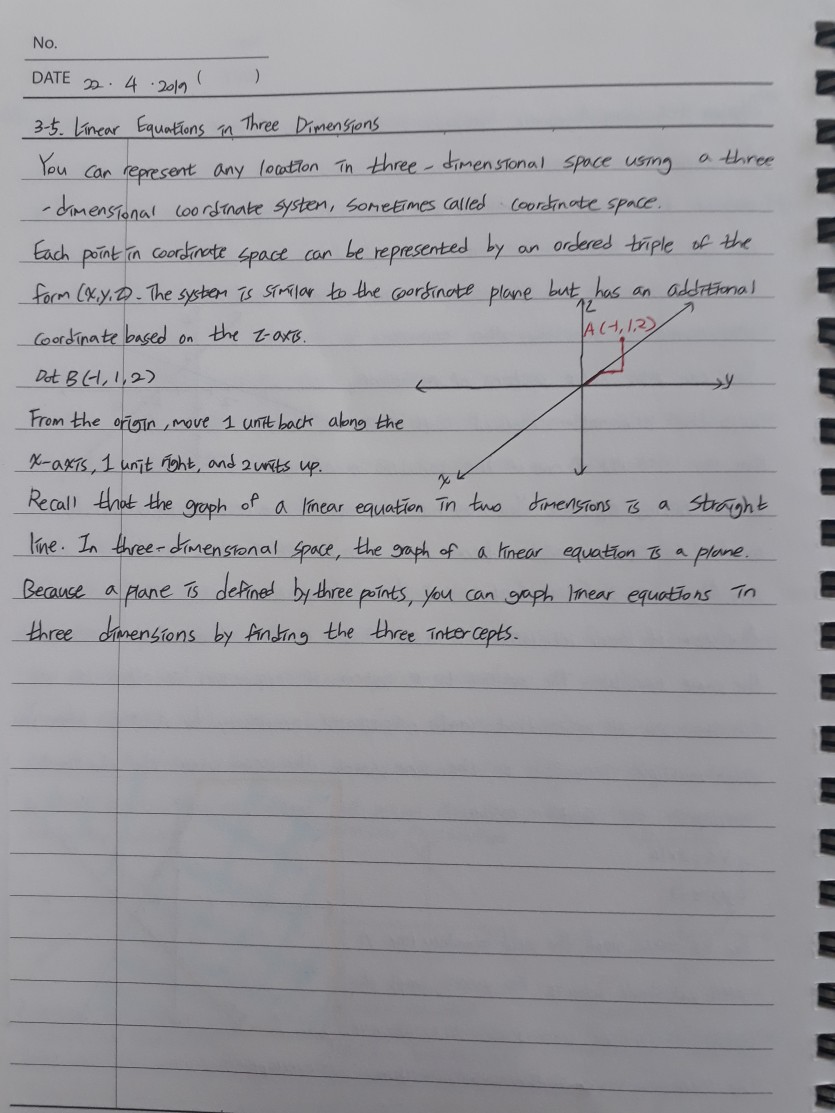 No.
DATE 22. 4. 2019 ( )
3-5. Linear Equations in Three Dimensions
You can represent any location in three-dimensional space using a three
-dimensional coordinate system, sometimes called coordinate space.
Each point in coordinate space can be represented by an ordered triple of the
form (x,y,z). The system is similar to the coordinate plane but has an additional
coordinate based on the z-axis.
Z
A(-1,1,2)
Dot B(-1,1,2)
y
From the origin, move 1 unit back along the
x-axis, 1 unit right, and 2 units up.
x
Recall that the graph of a linear equation in two dimensions is a straight
line. In three-dimensional space, the graph of a linear equation is a plane.
Because a plane is defined by three points, you can graph linear equations in
three dimensions by finding the three intercepts.